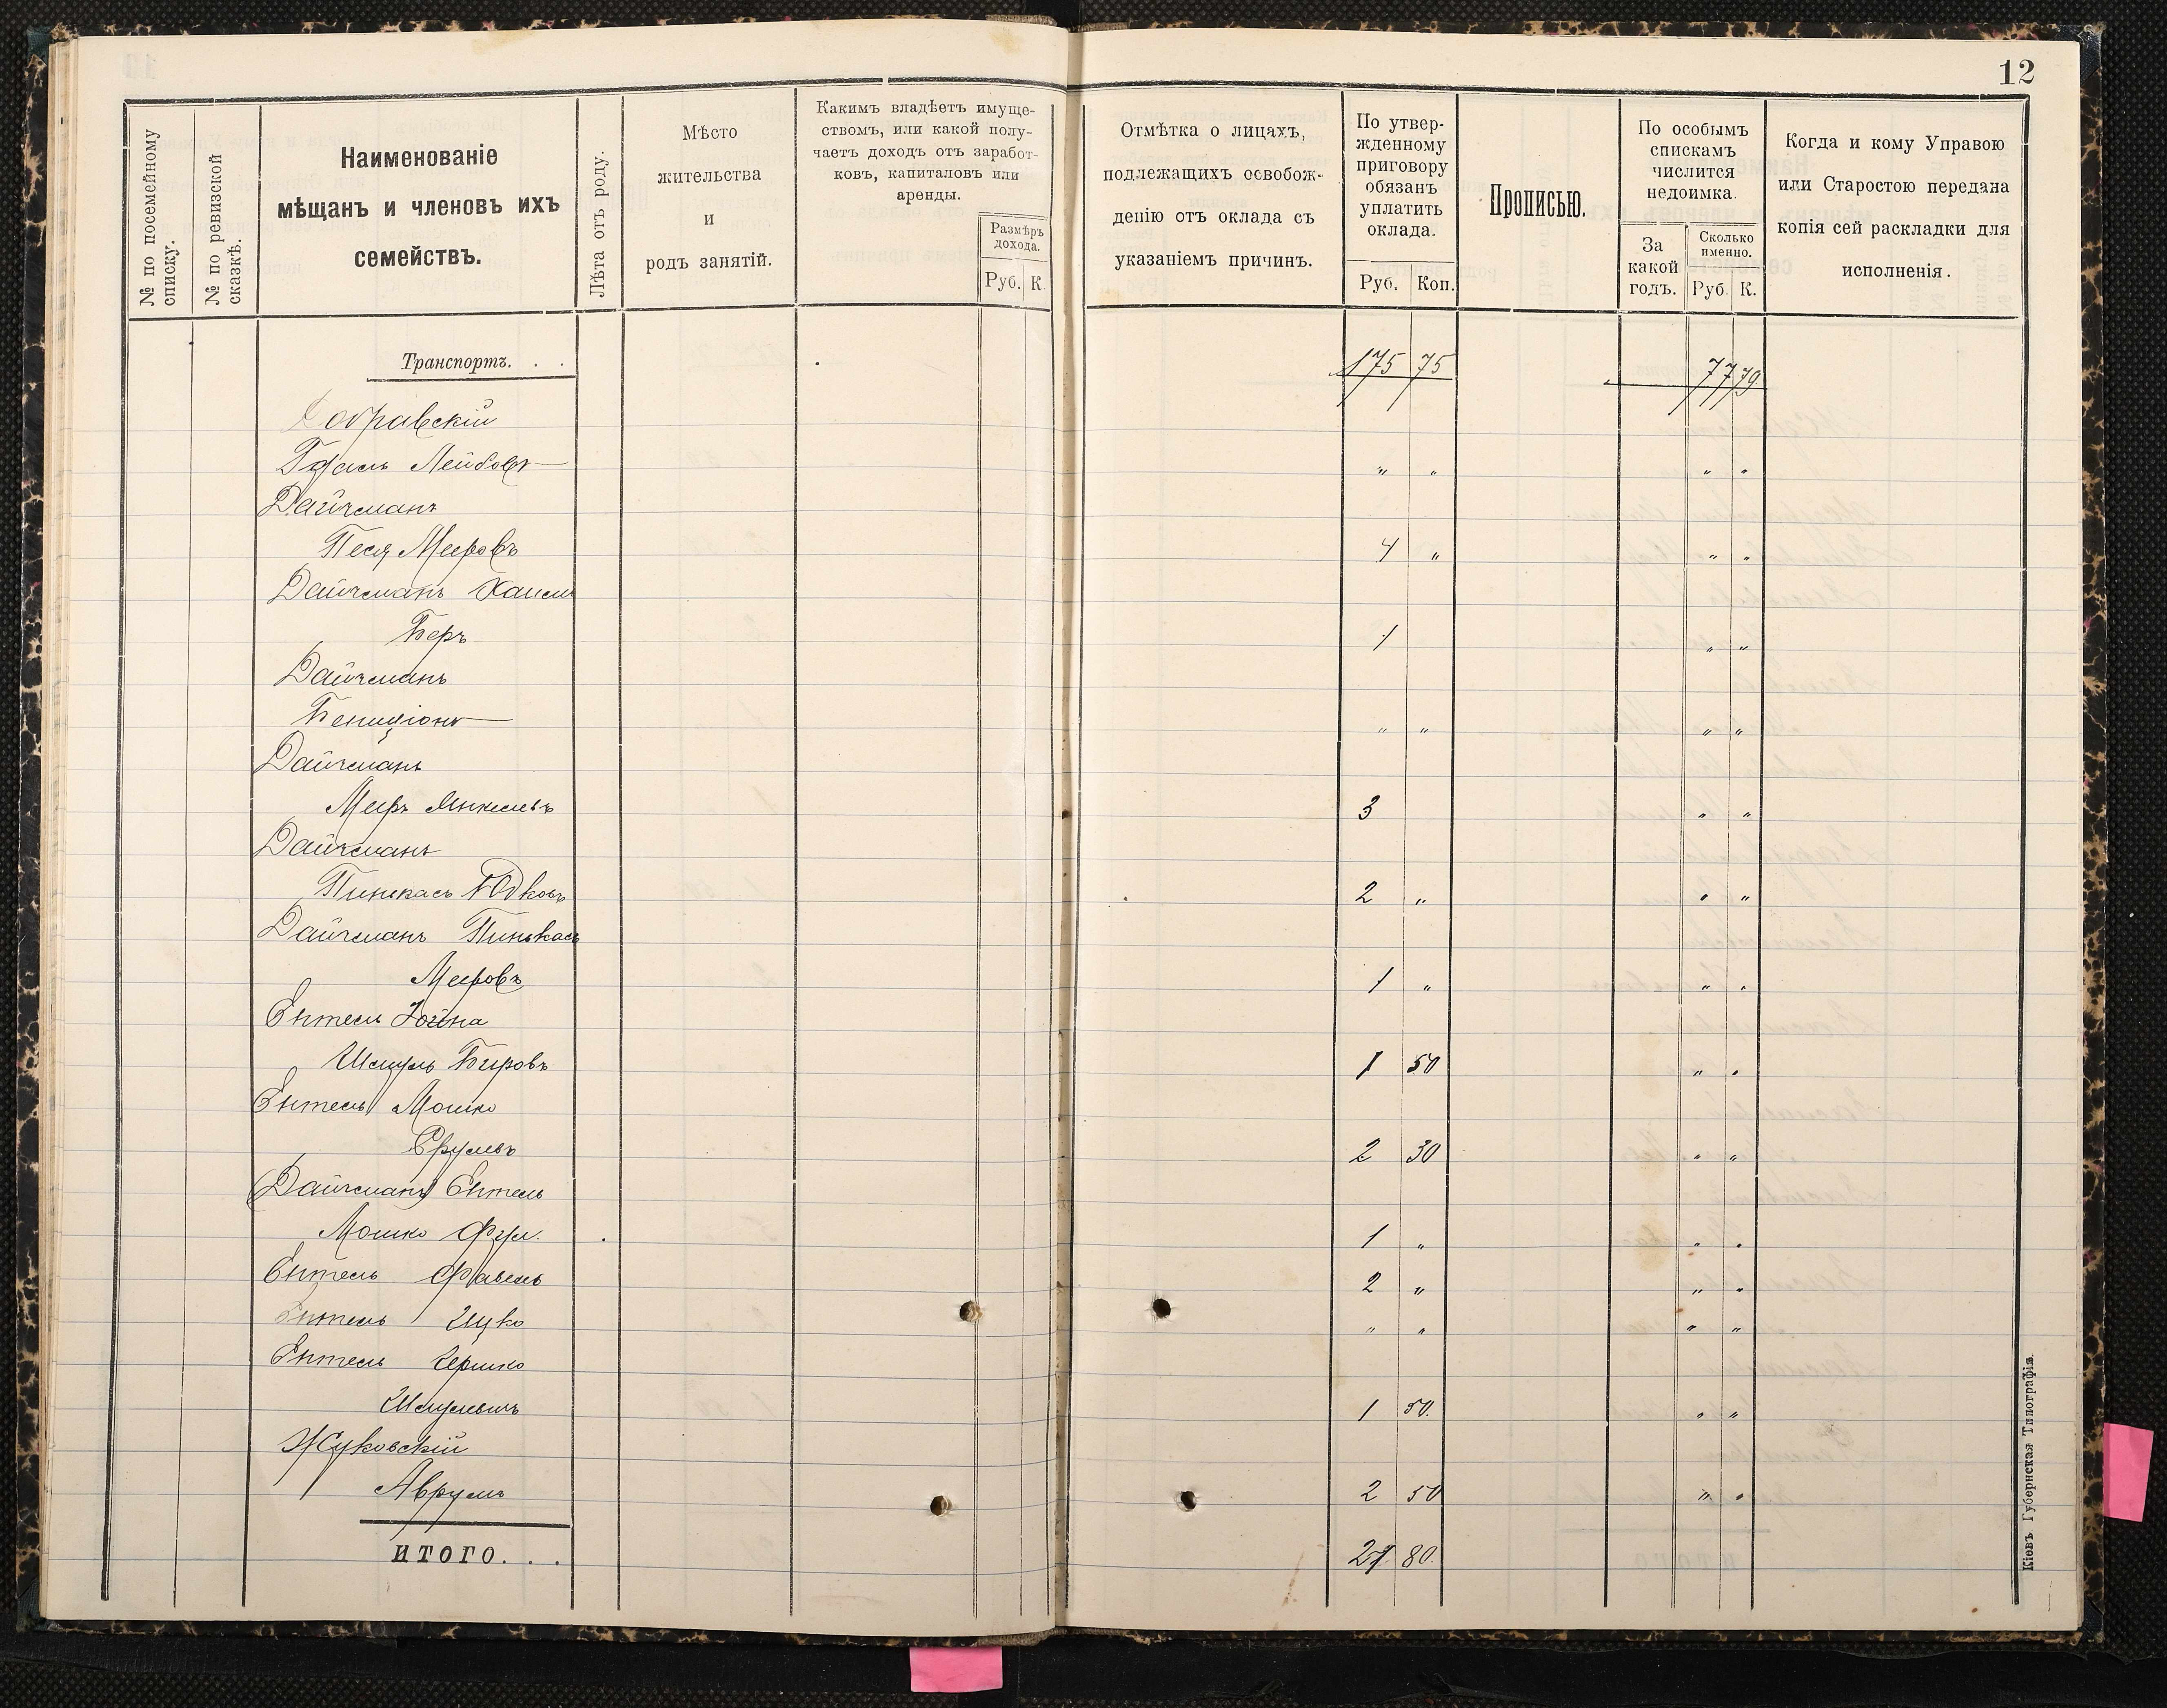 12
№ по посемейному списку.
№ по ревизской сказкѣ.
Наименованіе
мѣщанъ и членовъ ихъ
семействъ.
Лѣта отъ роду.
Мѣсто
жительства
и
родъ занятій.
Какимъ владѣетъ имуще-
ствомъ, или какой полу-
чаетъ доходъ отъ заработ-
ковъ, капиталовъ или
аренды.
Размѣръ
дохода.
Руб. К.
Отмѣтка о лицахъ,
подлежащихъ освобож-
денію отъ оклада съ
указаніемъ причинъ.
По утвер-
жденному
приговору
обязанъ
уплатить
оклада.
Руб. Коп.
Прописью.
По особымъ
спискамъ
числится
недоимка.
За
какой
годъ.
Сколько
именно.
Руб. К.
Когда и кому Управою
или Старостою передана
копія сей раскладки для
исполненія.
Транспортъ. . . 175 75 77 79
Лейбовъ " " " "
Дайчманъ
Песя Мееровъ 4 " " "
Дайчманъ Хаимъ
Беръ 1 " "
Дайчманъ
Бенціонъ " " " "
Дайчманъ
Меръ Янкелевъ 3 " "
Дайчманъ
Пинхасъ Юдковъ 2 " " "
Дайчманъ Пинькасъ
Мееровъ 1 " " "
Ентель Іойна
Шмуль Беровъ 1 50 " "
Ентель Мошко
Срулевъ 2 30 " "
(Дайчманъ) Ентель
Мошко 1 " " "
Ентель Файвель 2 " " "
Ентель Ицко " " " "
Ентель Гершко
Шмулевичъ 1 50. " "
Жуковскій
Аврумъ 2 50 " "
ИТОГО. . . 21 80.
Кіевъ Губернская Типографія.